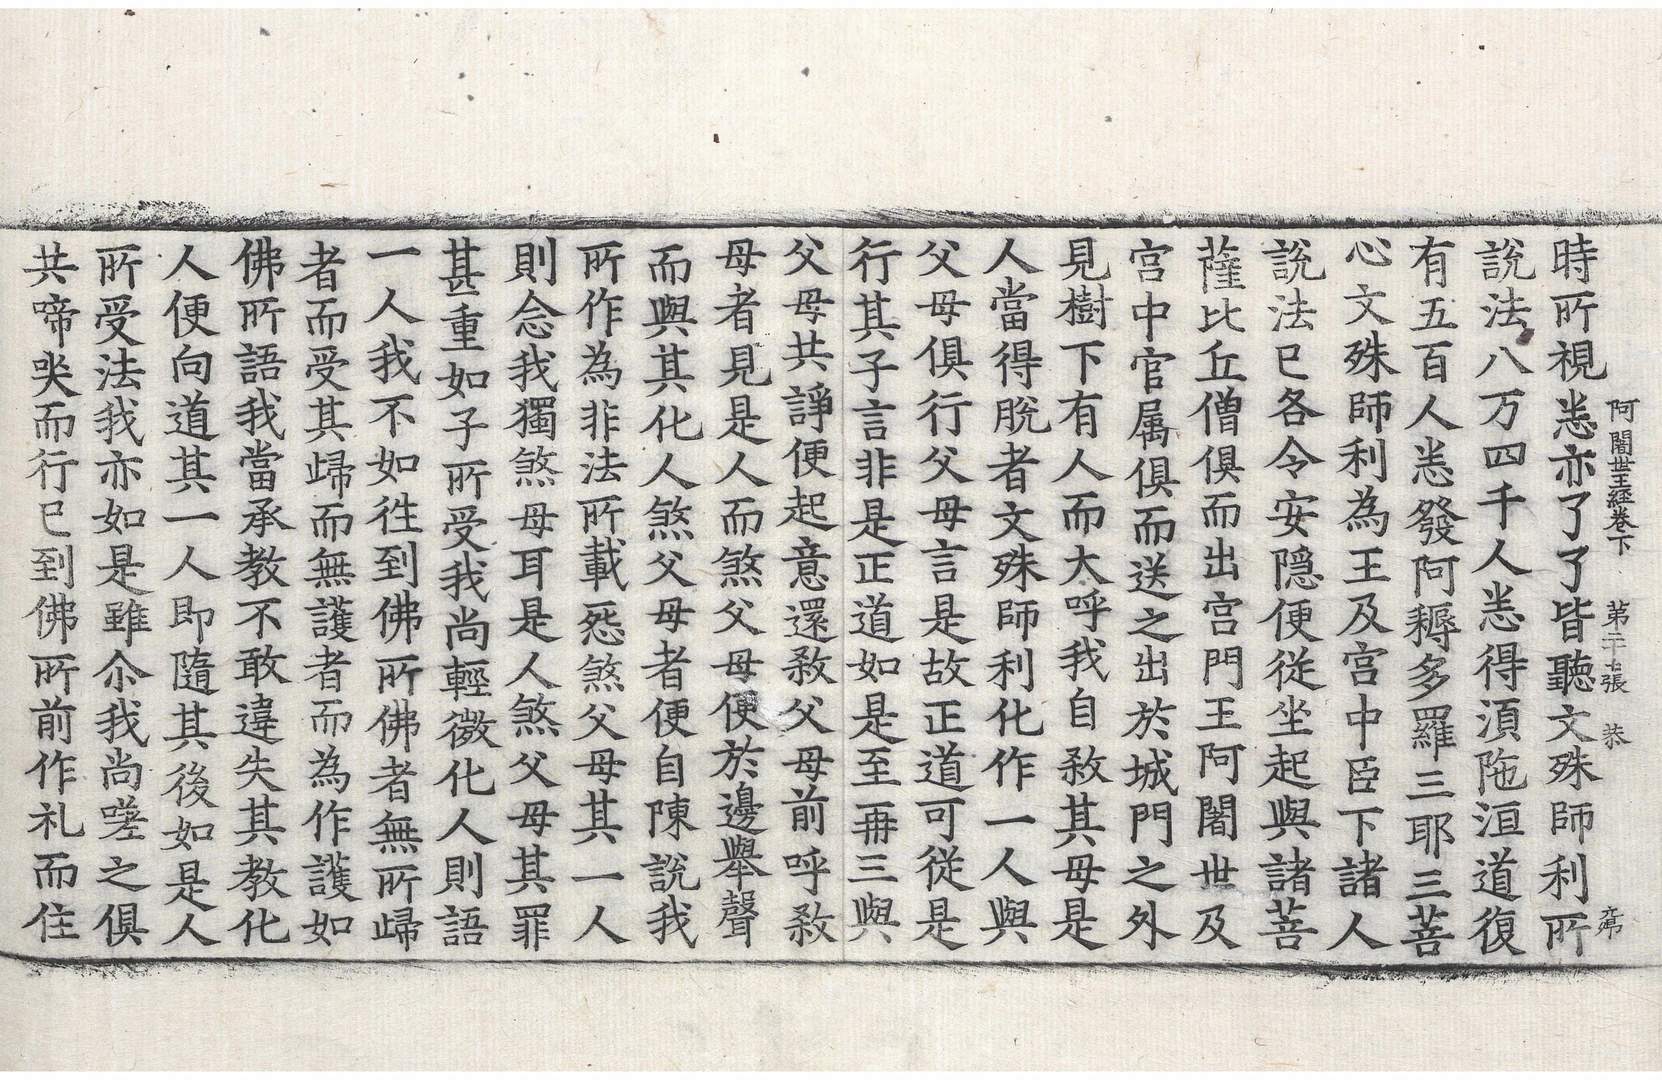 阿闍世王經卷下　第二十張　恭
時所視恙亦了了皆聽文殊師利所
說法八万四千人恙得湏陁洹道復
有五百人恙發阿耨多羅三耶三菩
心文殊師利為王及宫中臣下諸人
說法已各令安隠便従坐起與諸菩
薩比丘僧俱而出宫門王阿闍世及
宫中官属俱而送之出於城門之外
見樹下有人而大呼我自煞其母是
人當得脫者文殊師利化作一人與
父母俱行父母言是故正道可従是
行其子言非是正道如是至再三與
父母共諍便起意還煞父母前呼煞
母者見是人而煞父母便於邊舉聲
而與其化人煞父母者便自陳說我
所作為非法所載𢙣煞父母其一人
則念我獨煞母耳是人煞父母其罪
甚重如子所受我尚輕微化人則語
一人我不如往到佛所佛者無所歸
者而受其歸而無護者而為作護如
佛所語我當承教不敢違失其教化
人便向道其一人即隨其後如是人
所受法我亦如是雖尒我尚嗟之俱
共啼哭而行已到佛所前作礼而住